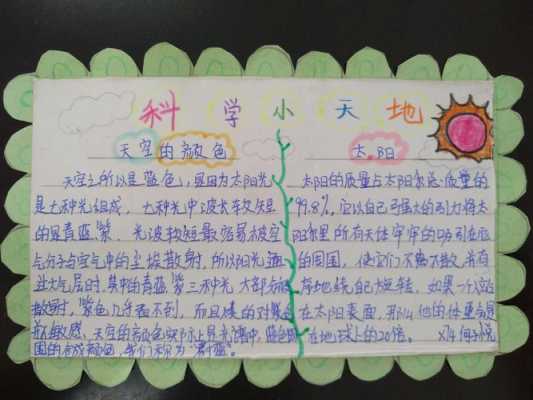 科学小天地
天空的颜色
天空之所以是蓝色,是因为太阳光
是七种光组成,七种光中波长较短
的是青蓝紫,光波较短最容易被空
气分子与空气中的尘埃散射,所以阳光通
过大气层时,其中的青蓝紫三种光大部分被
散射,紫色几乎看不到,而且人的对紫色
敏感,天空的颜色实际上是光谱中蓝色
围的合成颜色,我们称为"蔚蓝"。
太阳
太阳的质量占太阳系总质量的
99.8%,它以自己强大的引力将太
阳系里所有天体牢牢的吸引在
的周围,使它们不离不散,井有
序地绕自己旋转,如果一个人站
在太阳表面,那么他的体重会是
在地球上的20倍。